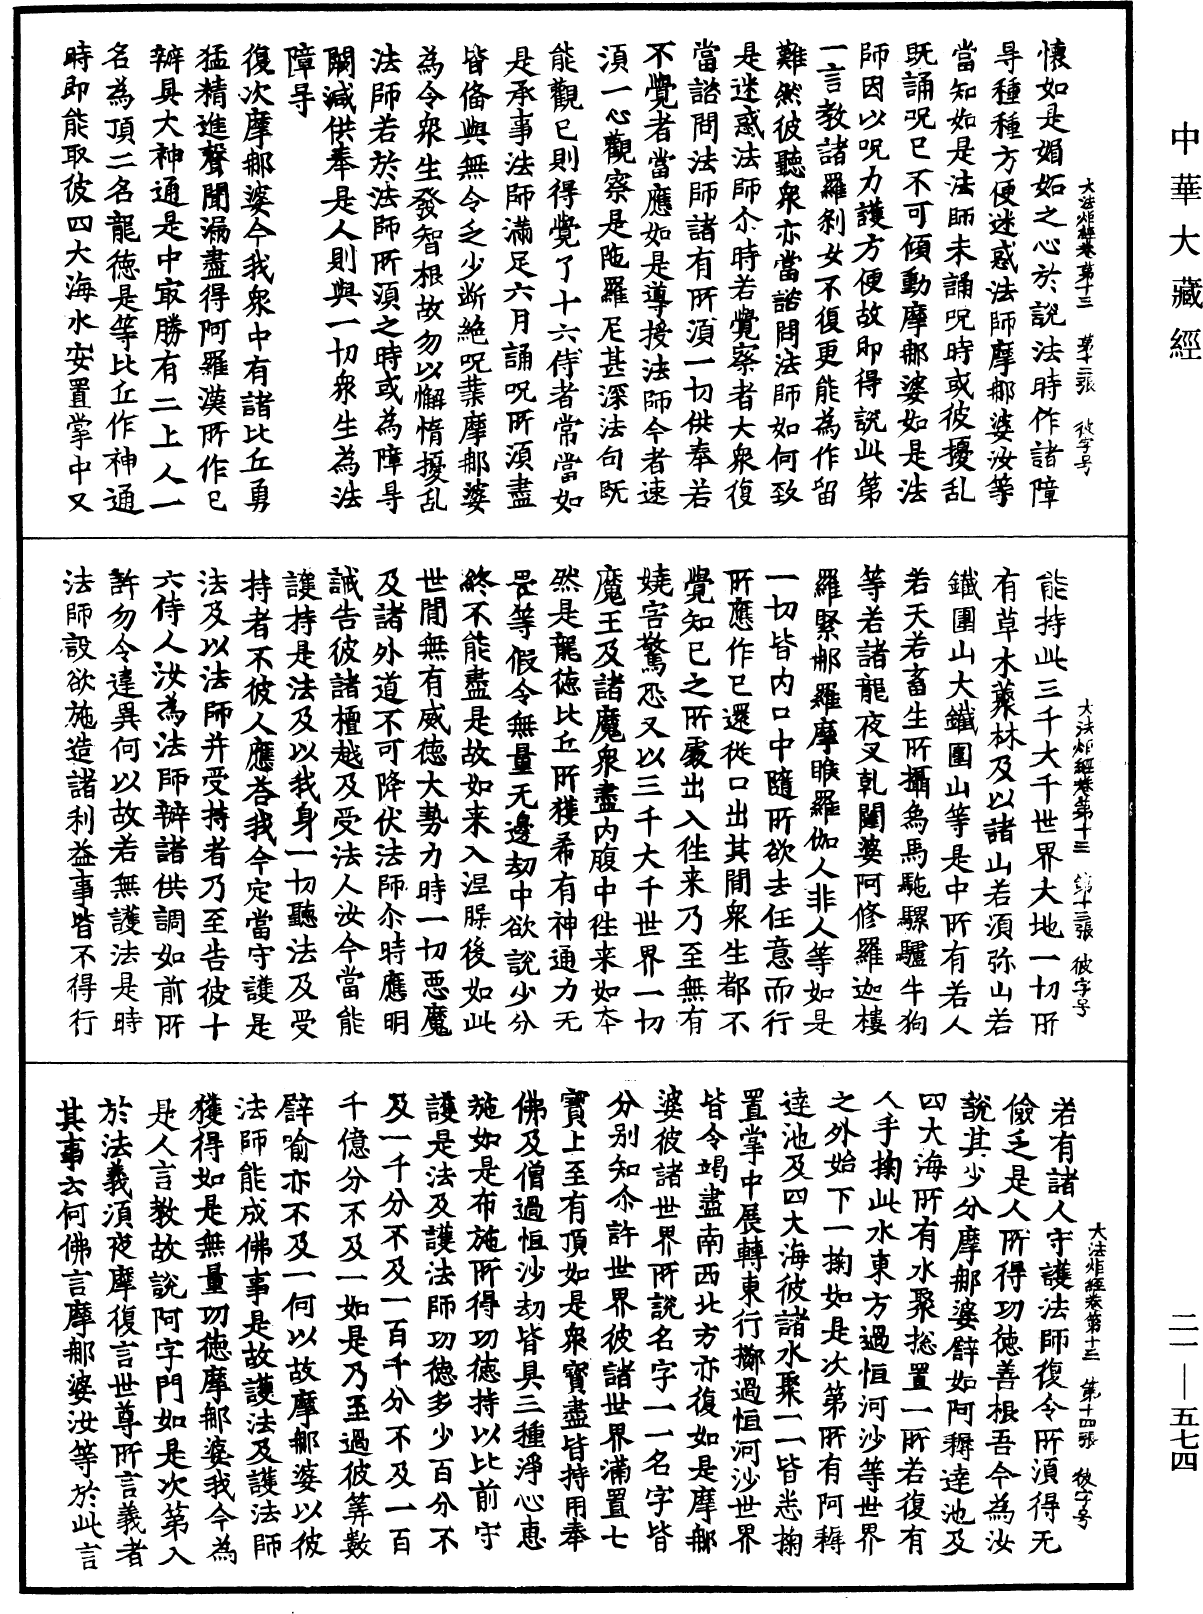 中華大藏經
二一—五七四
大法炬經卷第十三 第十二張 彼字号
懷如是媢妬之心於說法時作諸障
㝵種種方便迷惑法師摩那婆汝等
當知如是法師未誦呪時或彼擾乱
既誦呪已不可傾動摩那婆如是法
師因以呪力護方便故即得說此第
一言教諸羅刹女不復更能為作留
難然彼聽衆亦當諮問法師如何致
是迷惑法師尒時若覺察者大衆復
當諮問法師諸有所湏一切供奉若
不覺者當應如是導接法師今者速
湏一心觀察是陁羅尼甚深法句既
能觀已則得覺了十六侍者常當如
是承事法師滿足六月誦呪所湏盡
皆俻與無令乏少断絶呪業摩那婆
為令衆生發智根故勿以懈惰擾乱
法師若於法師所湏之時或為障㝵
闕減供奉是人則與一切衆生為法
障㝵
復次摩那婆今我衆中有諸比丘勇
猛精進聲聞漏盡得阿羅漢所作已
辦具大神通是中㝡勝有二上人一
名為頂二名龍徳是等比丘作神通
時即能取彼四大海水安置掌中又
大法炬經卷第十三 第十三張 彼字号
能持此三千大千世界大地一切所
有草木藂林及以諸山若湏弥山若
鐵圍山大鐵圍山等是中所有若人
若天若畜生所攝為馬駞騾驢牛狗
等若諸龍夜叉乹闥婆阿修羅迦樓
羅緊那羅摩睺羅伽人非人等如是
一切皆内口中隨所欲去任意而行
所應作已還從口出其間衆生都不
覺知已之所䖏出入徃来乃至無有
嬈害驚恐又以三千大千世界一切
魔王及諸魔衆盡内腹中徃来如夲
然是龍徳比丘所獲希有神通力无
畏等假令無量无邊劫中欲說少分
終不能盡是故如来入涅槃後如此
世間無有威徳大勢力時一切悪魔
及諸外道不可降伏法師尒時應明
誠告彼諸檀越及受法人汝今當能
護持是法及以我身一切聽法及受
持者不彼人應荅我今定當守護是
法及以法師并受持者乃至告彼十
六侍人汝為法師辦諸供調如前所
許勿令違異何以故若無護法是時
法師設欲施造諸利益事皆不得行
大法炬經卷第十三 第十四張 彼字号
若有諸人守護法師復令所湏得无
儉乏是人所得功徳善根吾今為汝
說其少分摩那婆辟如阿耨達池及
四大海所有水聚揔置一所若復有
人手掬此水東方過恒河沙等世界
之外始下一掬如是次第所有阿耨
達池及四大海彼諸水聚一一皆悉掬
置掌中展轉東行擲過恒河沙世界
皆令竭盡南西北方亦復如是摩那
婆彼諸世界所說名字一一名字皆
分别知尒許世界彼諸世界滿置七
寶上至有頂如是衆寶盡皆持用奉
佛及僧過恒沙劫皆具三種淨心恵
施如是布施所得功徳持以比前守
護是法及護法師功徳多少百分不
及一千分不及一百千分不及一百
千億分不及一如是乃至過彼筭數
辟喻亦不及一何以故摩那婆以彼
法師能成佛事是故護法及護法師
獲得如是無量功徳摩那婆我今為
是人言教故說阿字門如是次第入
於法義湏夜摩復言世尊所言義者
其事云何佛言摩那婆汝等於此言